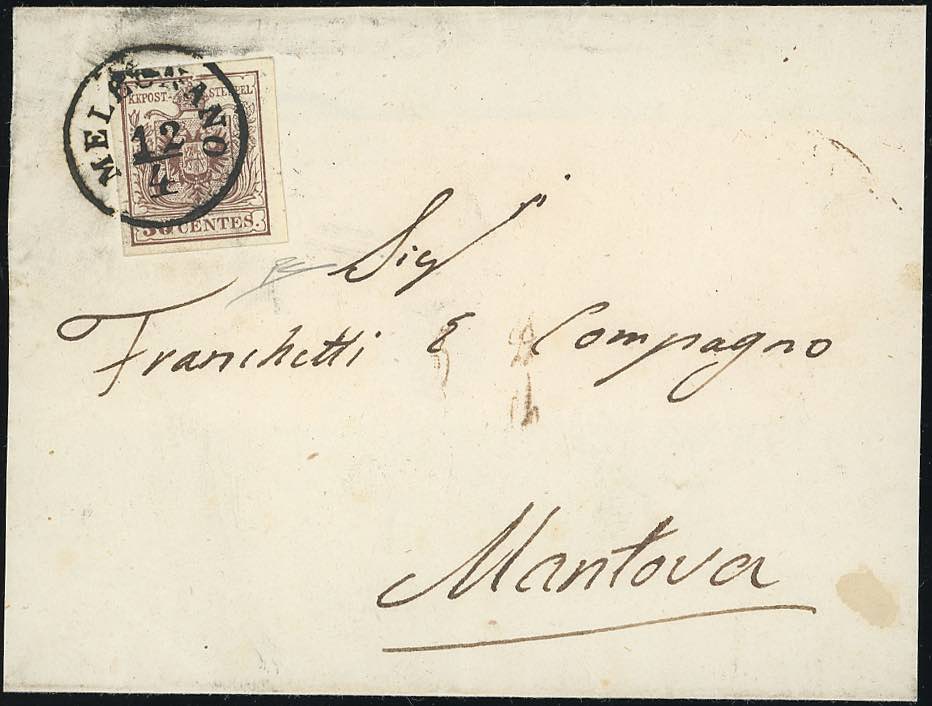 MELEGNANO
KKPOST-STEMPEL
12
4
30 CENTES.
Sig
Franchetti & Compagno
Mantova